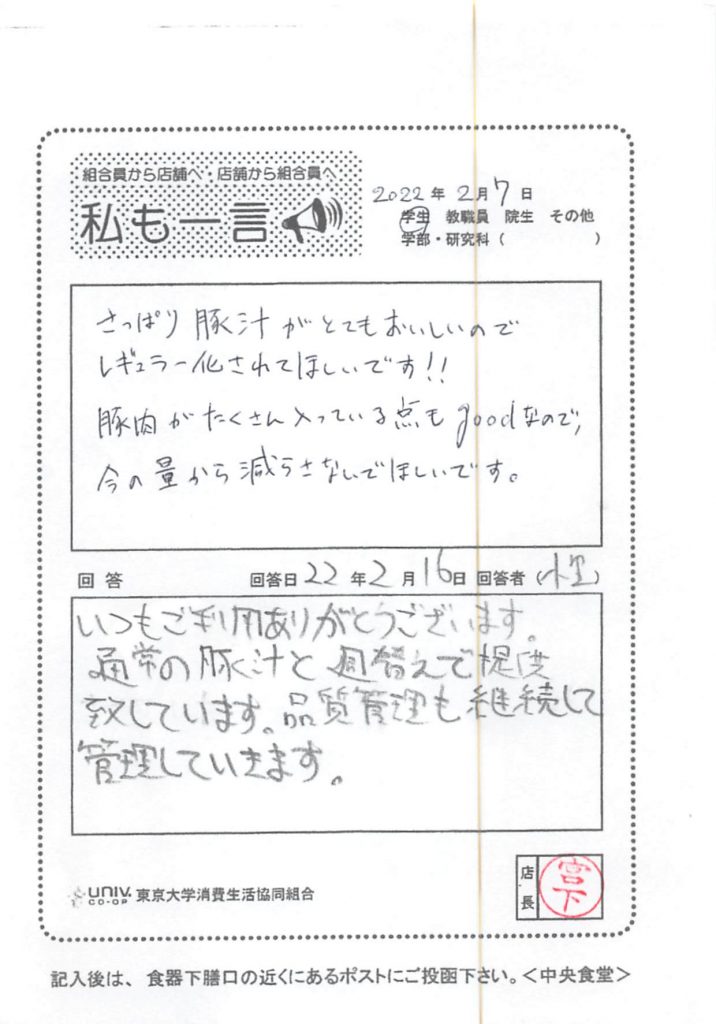 組合員から店舗へ・店舗から組合員へ
私も一言
2022年2月7日
学生 教職員 院生 その他
学部・研究科（ ）
さっぱり豚汁がとてもおいしいので
レギュラー化されてほしいです!!
豚肉がたくさん入っている点もgoodなので、
今の量から減らさないでほしいです。
回答 回答日22年2月16日 回答者
いつもご利用ありがとうございます。
通常の豚汁と週替えで提供
致しています。品質管理も継続して
管理していきます。
店長
宮下
UNIV.
CO-OP
東京大学消費生活協同組合
記入後は、食器下膳口の近くにあるポストにご投函下さい。＜中央食堂＞